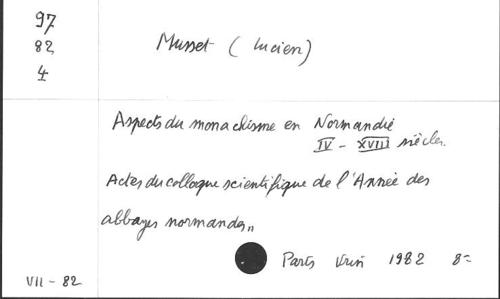 97
82
4
Musset (Lucien)
Aspects du monachisme en Normandie
IV - XVIII siècles.
Actes du colloque scientifique de l'Année des
abbayes normandes"
Paris Vrin 1982 8=
VII - 82